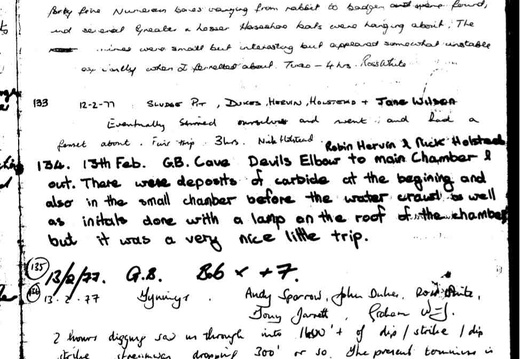 forty five Numerous bones varying from rabbit to badger and were found,
and several Greater & Lesser Horseshoe bats were hanging about. The
mines were small but interesting but appeared somewhat unstable
when I about. Time - 4 hrs. Ross White
133 12-2-77 SLUDGE PIT, DUKES, HERVIN, HOLSTEAD + JANE WILSON
Eventually ourselves and went and had a
about. Fair trip. 3hrs. Nick Holstead
Robin Hervin & Nick Holstead
134. 13th Feb. G.B. Cave Devils Elbow to main Chamber &
out. There were deposits of carbide at the begining and
also in the small chamber before the water crawl as well
as initals done with a lamp on the roof of the chamber
but it was a very nice little trip.
135 13/2/77. G.B. Bb x + 7.
13.2.77 Andy Sparrow, John Dukes, Ross White,
Tony Jarratt, Graham
2 hours digging saw us through into 1600'+ of dip / strike / dip
strike dropping 300' or so. The present terminus is